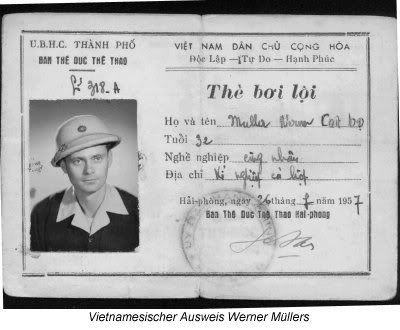 U.B.H.C. THÀNH PHỐ
BAN THỂ DỤC THỂ THAO
Số 318-A
VIỆT NAM DÂN CHỦ CỘNG HÒA
Độc Lập — Tự Do — Hạnh Phúc
Thẻ bơi lội
Họ và tên Muller Werner
Tuổi 32
Nghề nghiệp công nhân
Địa chỉ Xí nghiệp cá hộp
Hải-phòng, ngày 26 tháng 7 năm 1957
Ban Thể Dục Thể Thao Hải-phong
Vietnamesischer Ausweis Werner Müllers